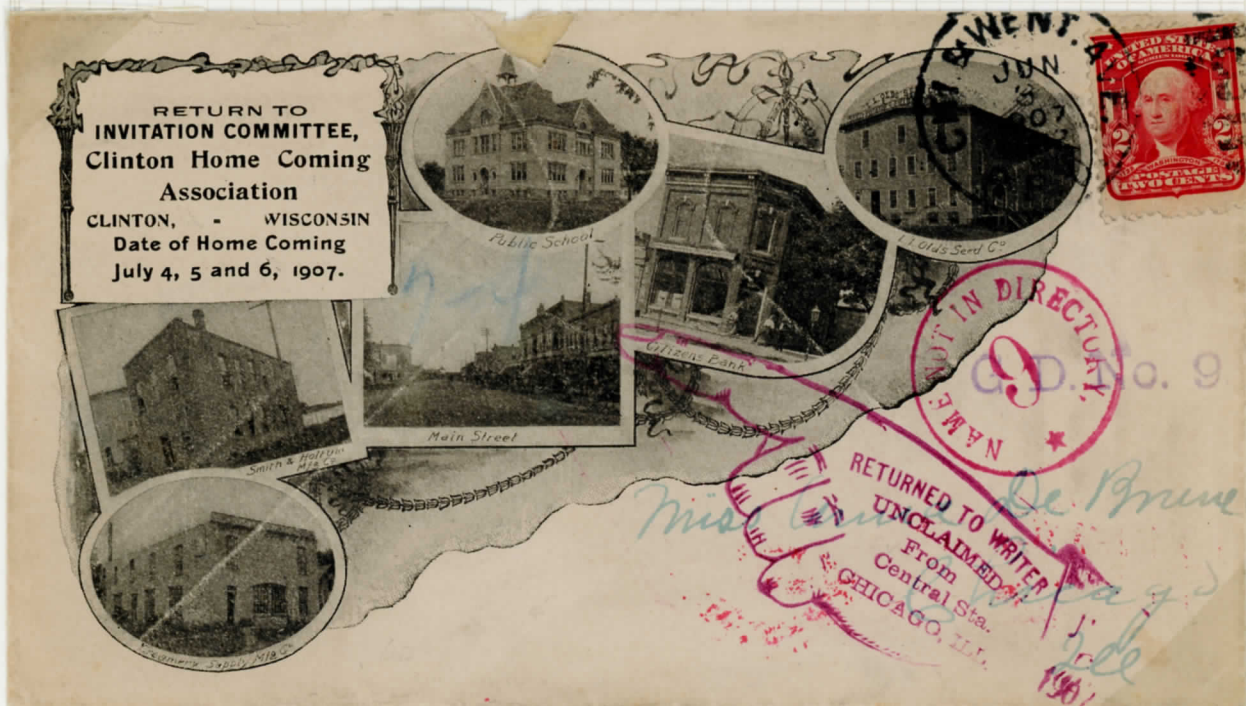 RETURN TO
INVITATION COMMITTEE,
Clinton Home Coming
Association
CLINTON, - WISCONSIN
Date of Home Coming
July 4, 5 and 6, 1907.
Public School
L.L. Olds Seed Co
Citizens Bank
Main Street
Smith &
Mfg Co
Creamery Supply Mfg Co
CHI & WENT.
JUN
UNITED STATES
OF AMERICA
2 2
WASHINGTON
POSTAGE
TWO CENTS
NAME NOT IN DIRECTORY,
9
G. D. No. 9
RETURNED TO WRITER
UNCLAIMED
From
Central Sta.
CHICAGO, ILL.
Miss De Brune
Chicago
Ill